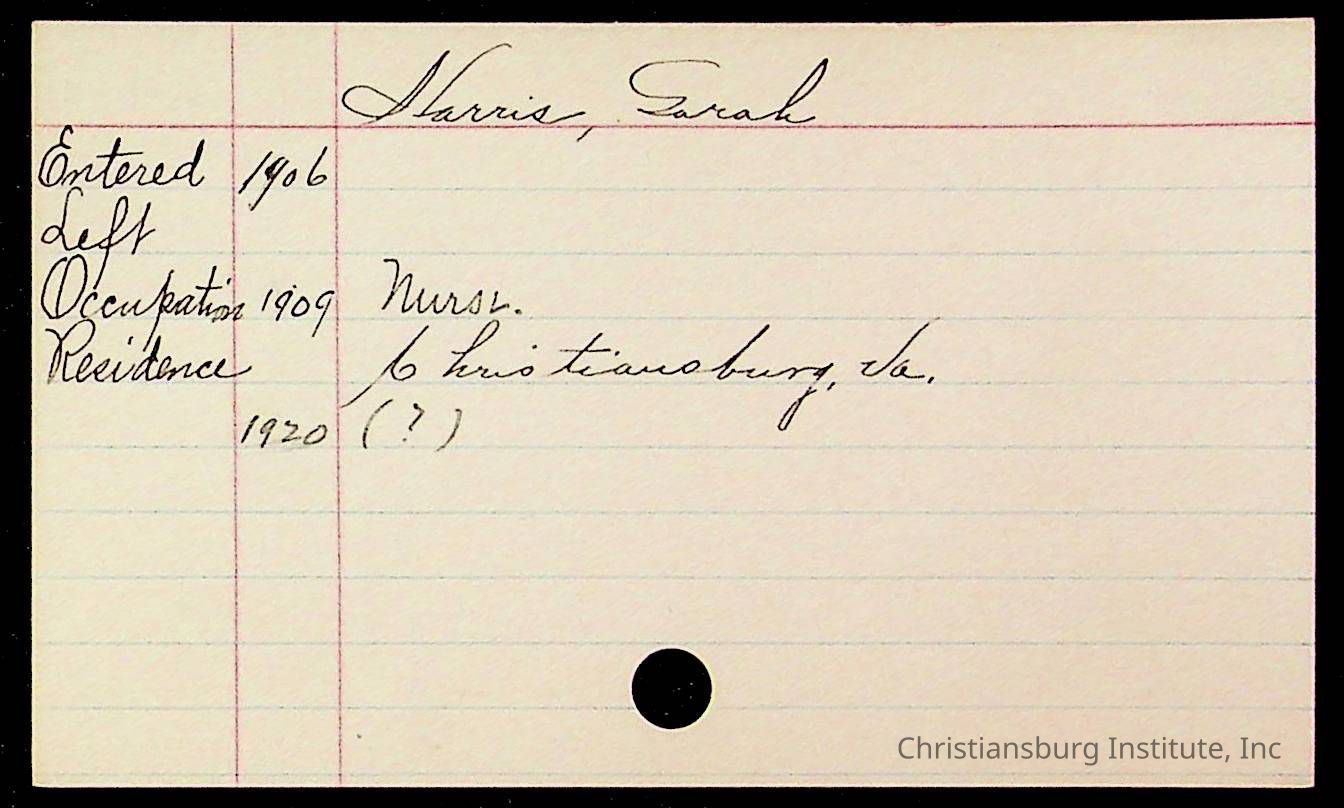 Harris, Sarah
Entered 1906
Left
Occupation 1909 Nurse.
Residence Christiansburg, Va.
1920 (?)
Christiansburg Institute, Inc